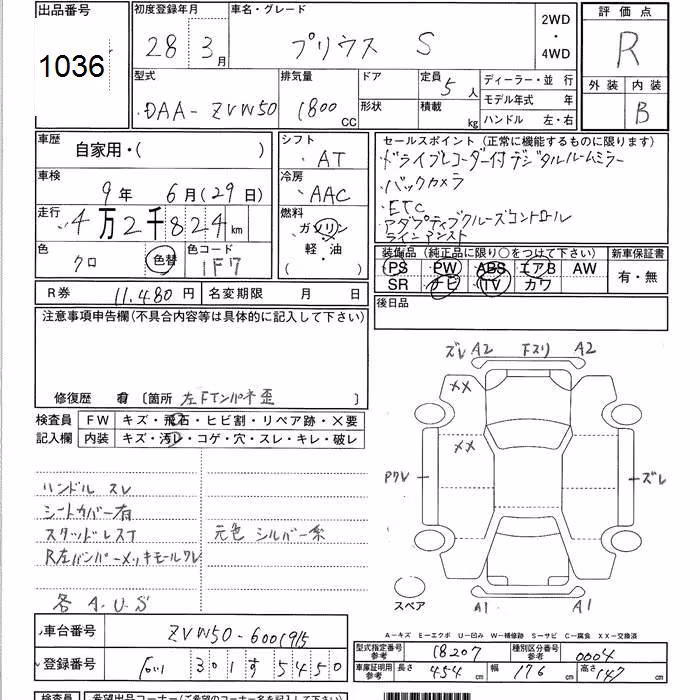 出品番号
1036
初度登録年月
28 3月
車名・グレード
プリウス S
2WD
・
4WD
評価点
R
外装 内装
B
型式
DAA-ZVW50
排気量
1800 CC
ドア
形状
定員
5人
積載
kg
ディーラー・並行
モデル年式 年
ハンドル 左・右
車歴
自家用・( )
車検
9年 6月(29日)
走行
4万2千824km
色
クロ
色替
色コード
1F7
シフト
AT
冷房
AAC
燃料
ガソリン
軽・油
( )
セールスポイント(正常に機能するものに限ります)
・ドライブレコーダー付デジタルルームミラー
・バックカメラ
・ETC
・アダプティブクルーズコントロール
ラインアシスト
装備品(純正品に限り○をつけて下さい)
PS PW ABS エアB AW
SR ナビ TV カワ
新車保証書
有・無
後日品
R券 11,480円
名変期限 月 日
注意事項申告欄(不具合内容等は具体的に記入して下さい)
修復歴 有 〔箇所 左Fインパネ歪 〕
検査員
記入欄
FW キズ・飛石・ヒビ割・リペア跡・X要
内装 キズ・汚レ・コゲ・穴・スレ・キレ・破レ
ハンドル スレ
シートカバー有
スタッドレスT
R左バンパーメッキモールワレ
各 A.U.S
元色 シルバー系
ズレ A2 Fスリ A2
XX
XX
Pワレ
ズレ
スペア
A1 A1
A-キズ E-エクボ U-凹み W-補修跡 S-サビ C-腐食 XX-交換済
車台番号 ZVW50-6001915
登録番号 301す5450
型式指定番号
参考
18207
種別区分番号
参考
0004
車庫証明用
参考
長さ 454cm 幅 176cm 高さ 147cm
検査員 希望出品コーナー(ご希望のコーナー名を記入して下さい)